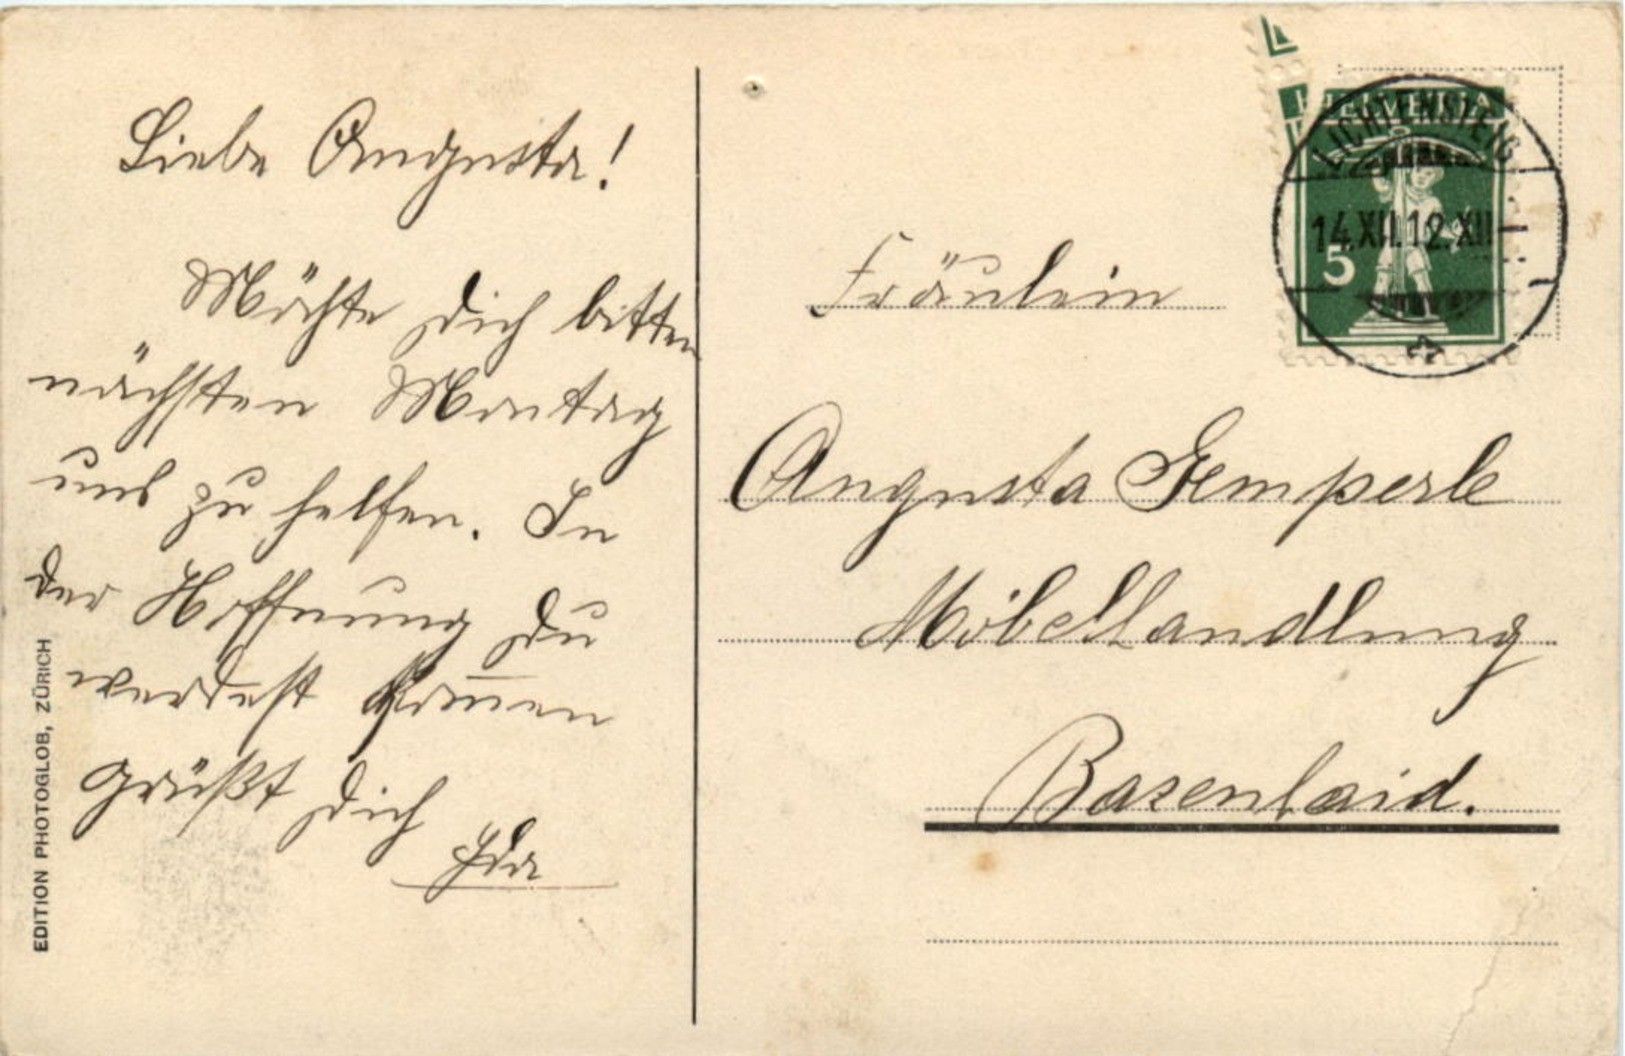 Liebe Augusta!
Möchte Dich bitten
nächsten Montag
uns zu helfen. In
der Hoffnung Du
werdest kom̄en
grüßt Dich
Ida
EDITION PHOTOGLOB, ZÜRICH
HELVETIA
5
LICHTENSTEIG
14.XII.12.XII
Fräulein
Augusta Gemperle
Möbelhandlung
Bazenhaid.